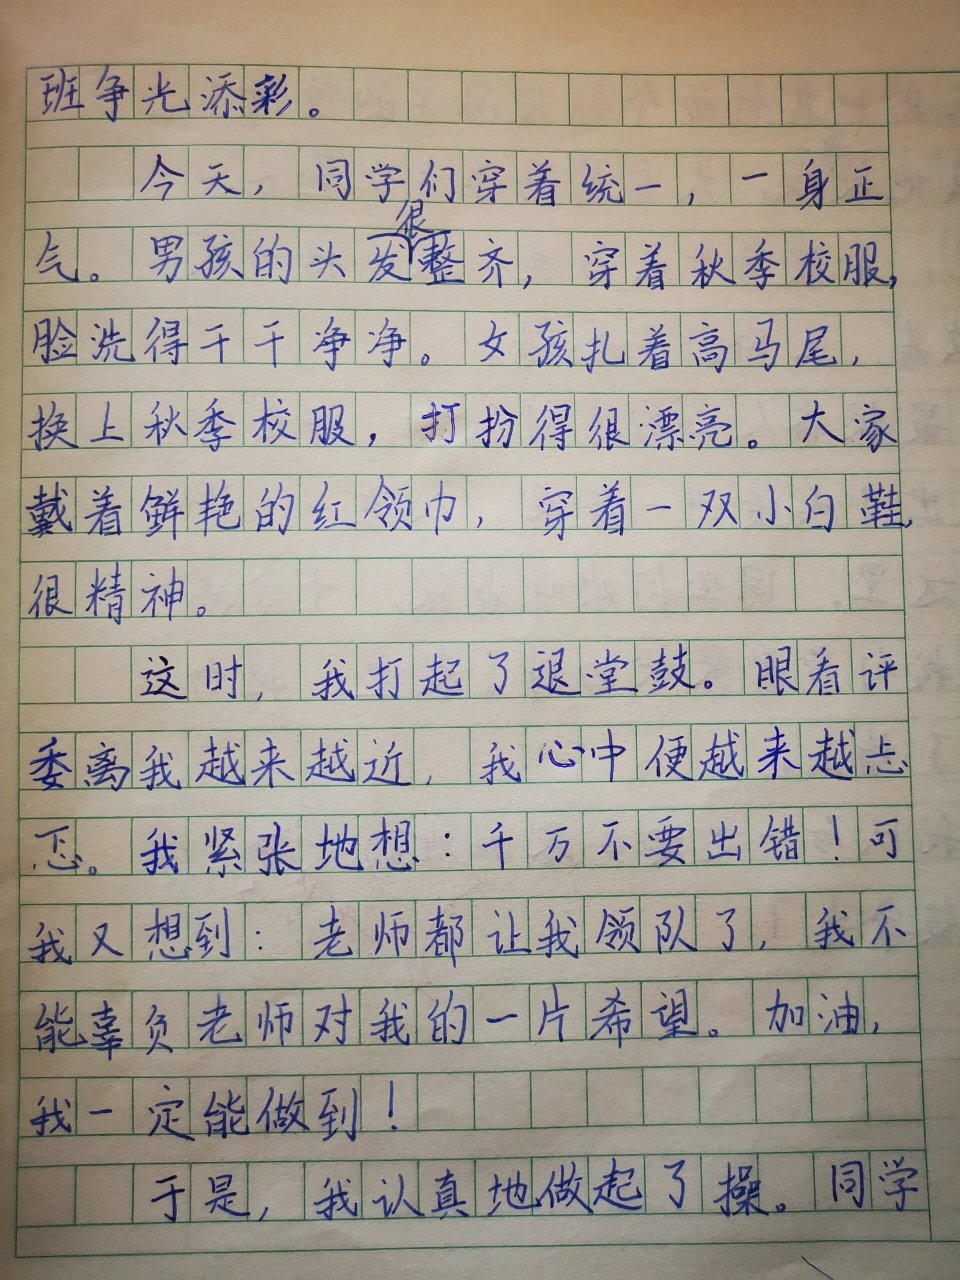 班争光添彩。
今天，同学们穿着统一，一身正
气。男孩的头发很整齐，穿着秋季校服，
脸洗得干干净净。女孩扎着高马尾，
换上秋季校服，打扮得很漂亮。大家
戴着鲜艳的红领巾，穿着一双小白鞋，
很精神。
这时，我打起了退堂鼓。眼看评
委离我越来越近，我心中便越来越忐
忑。我紧张地想：千万不要出错！可
我又想到：老师都让我领队了，我不
能辜负老师对我的一片希望。加油，
我一定能做到！
于是，我认真地做起了操。同学